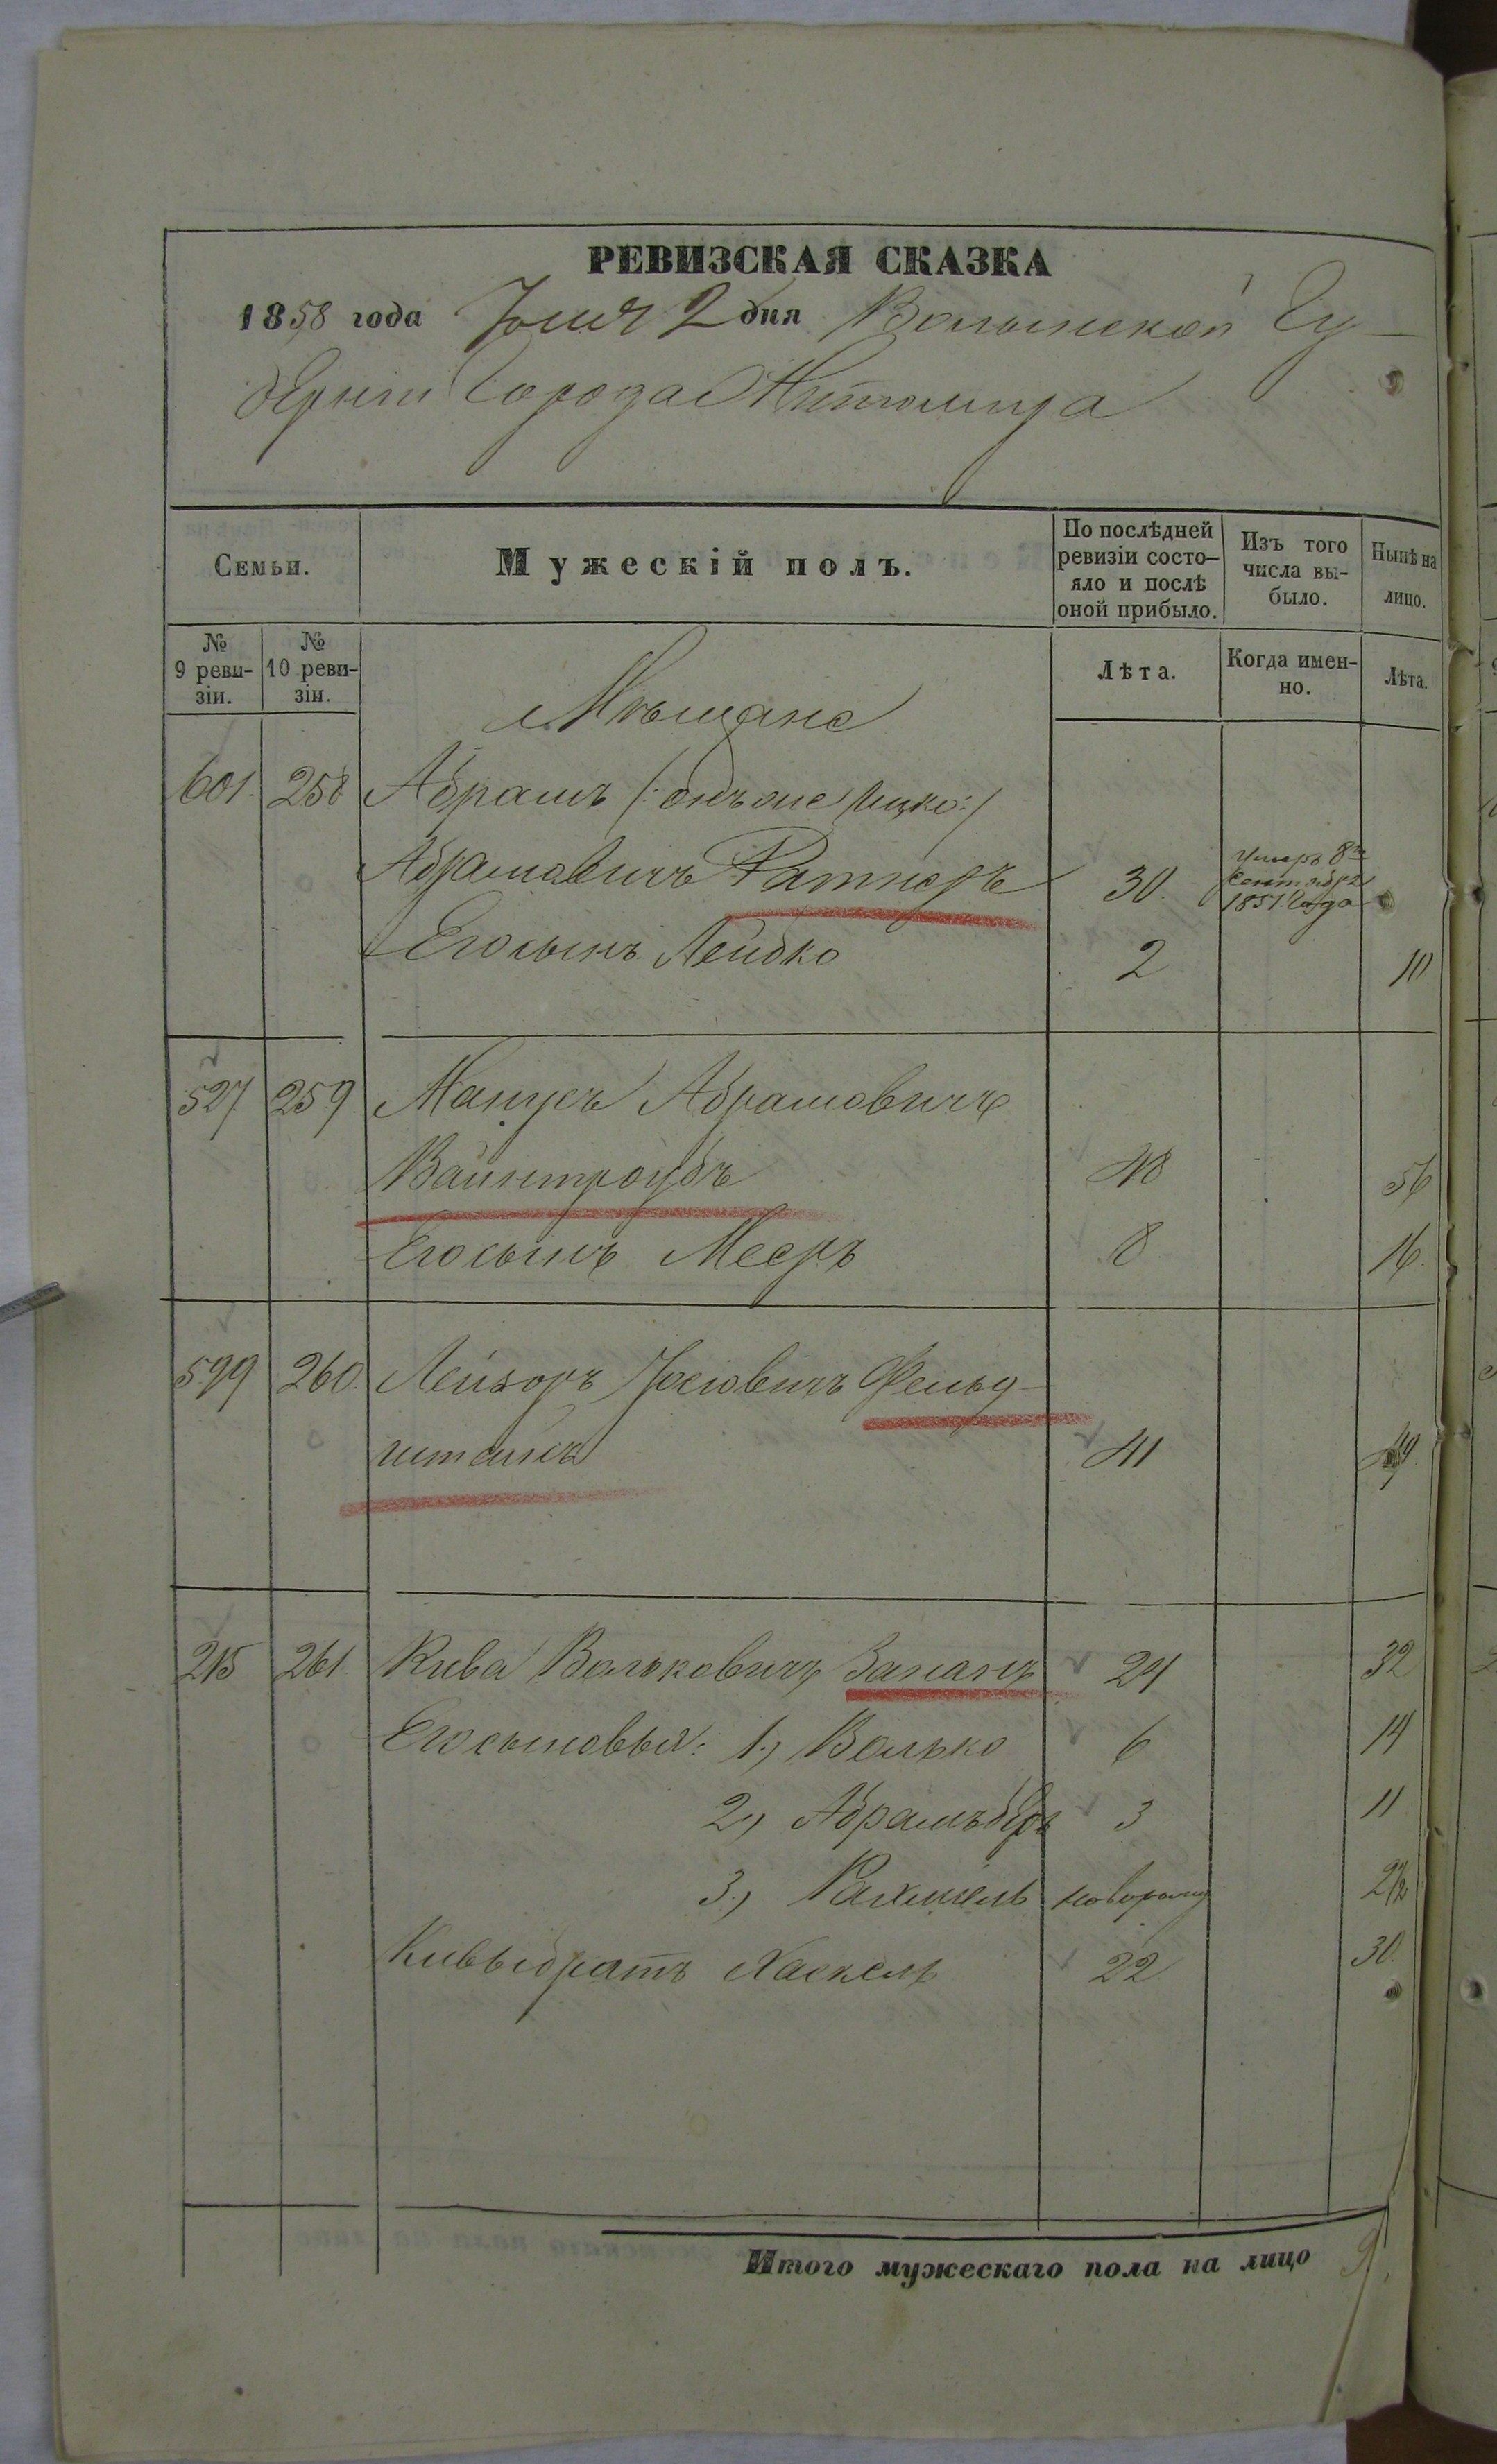 РЕВИЗСКАЯ СКАЗКА
1858 года Юня 2 дня Волынской Гу-
берніи Города Житомира
Семьи.
Мужескій полъ.
По послѣдней ревизіи состо-
яло и послѣ оной прибыло.
Изъ того числа вы-
было.
Нынѣ на лицо.
№ 9 реви-
зіи.
№ 10 реви-
зіи.
Лѣта.
Когда имен-
но.
Лѣта.
Мѣщане
601. 258 Абрамъ /: онъ же Ицко :/
Абрамовичъ Ратнеръ 30. Умеръ 8го Сентября 1851. Года
Его сынъ Лейбко 2 10
527 259 Манусъ Абрамовичъ
Вайнтроубъ 48 56
Его сынъ Мееръ 8 16.
599 260. Лейзоръ Іосіовичъ Фельд-
штейнъ 41 49
215 261 Кива Вольковичъ 24 32
Его сыновья: 1.) Волько 6 14
2.) Абрамъ беръ 3 11
3.) Рахмель новорожд
Кивы братъ Хаскель 22 30.
Итого мужескаго пола на лицо 9.